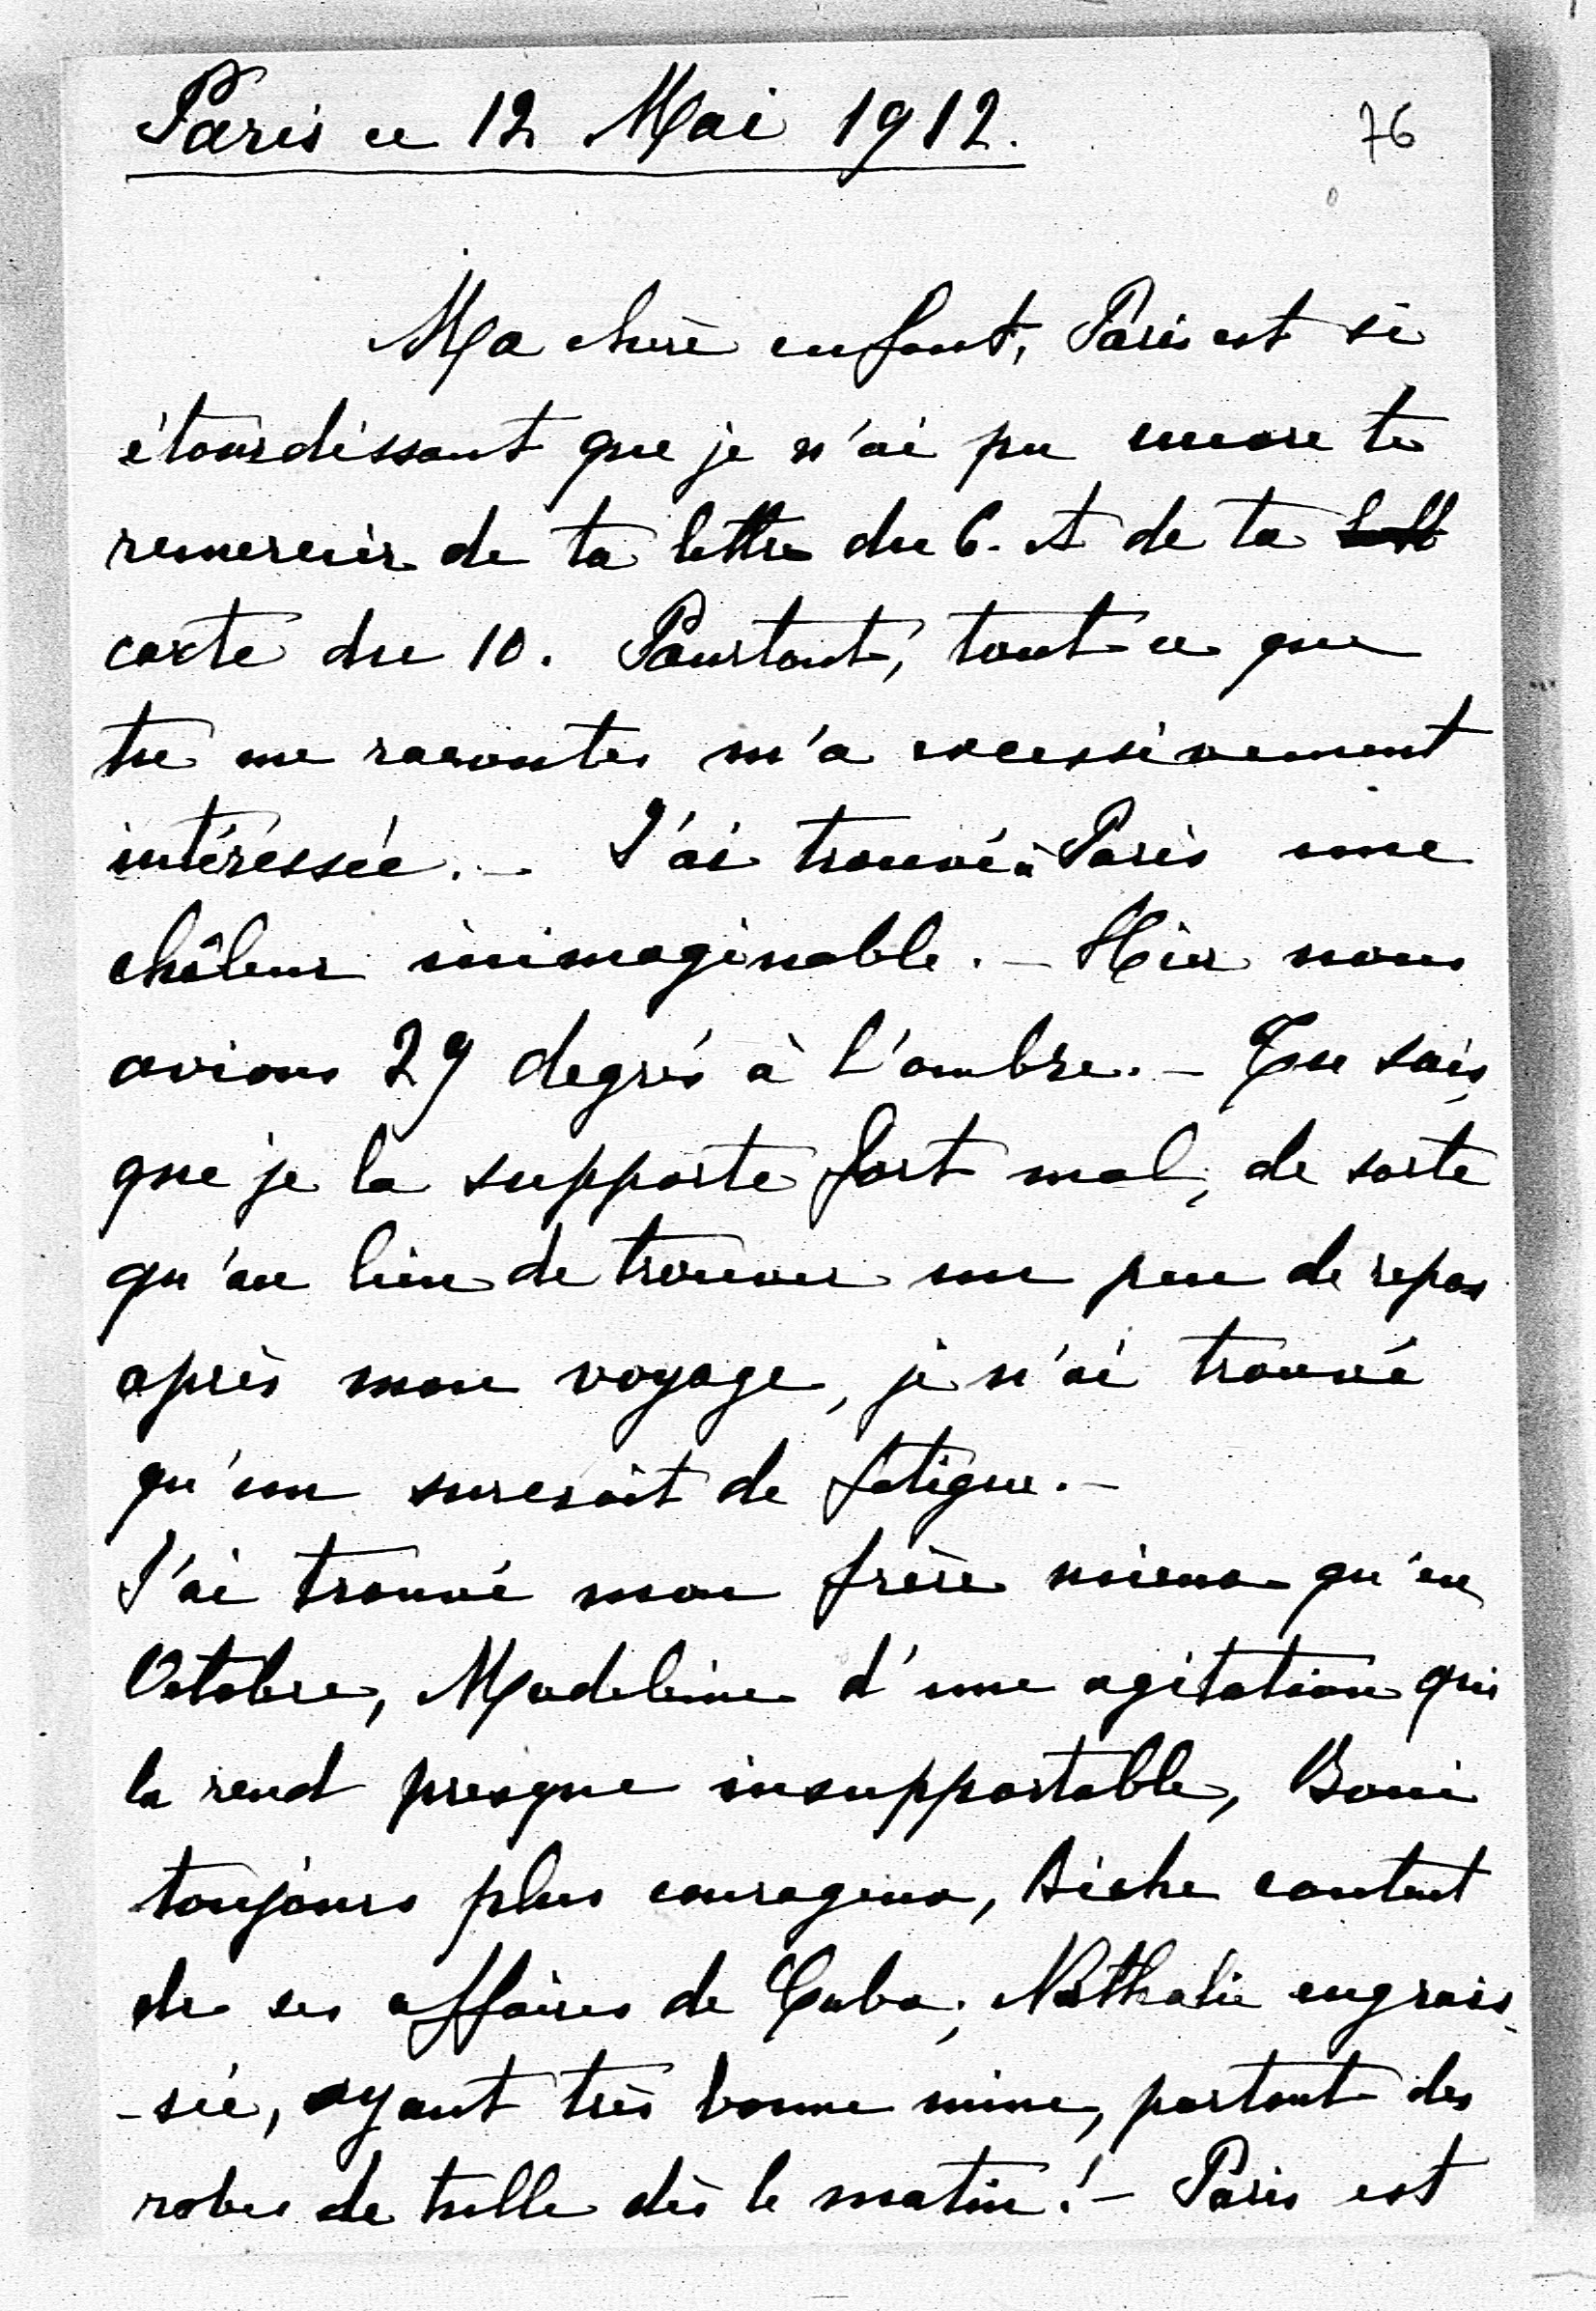 Paris ce 12 Mai 1912.
76
Ma chère enfant, Paris est si
étourdissant que je n'ai pu encore te
remercier de ta lettre du 6. et de ta
carte du 10. Pourtant, tout ce que
tu me racontes m'a excessivement
intéréssée. - J'ai trouvé à Paris une
châleur inimaginable. - Hier nous
avions 29 degrés à l'ombre. - Tu sais
que je la supporte fort mal, de sorte
qu'au lieu de trouver un peu de repos
après mon voyage, je n'ai trouvé
qu'un surcroit de fatigue. -
J'ai trouvé mon frère mieux qu'en
Octobre, Madeleine d'une agitation qui
la rend presque insupportable, Boni
toujours plus courageux, Aiche content
de ses affaires de Cuba, Nathalie engrais
-sée, ayant très bonne mine, portant des
robes de tulle dès le matin! - Paris est